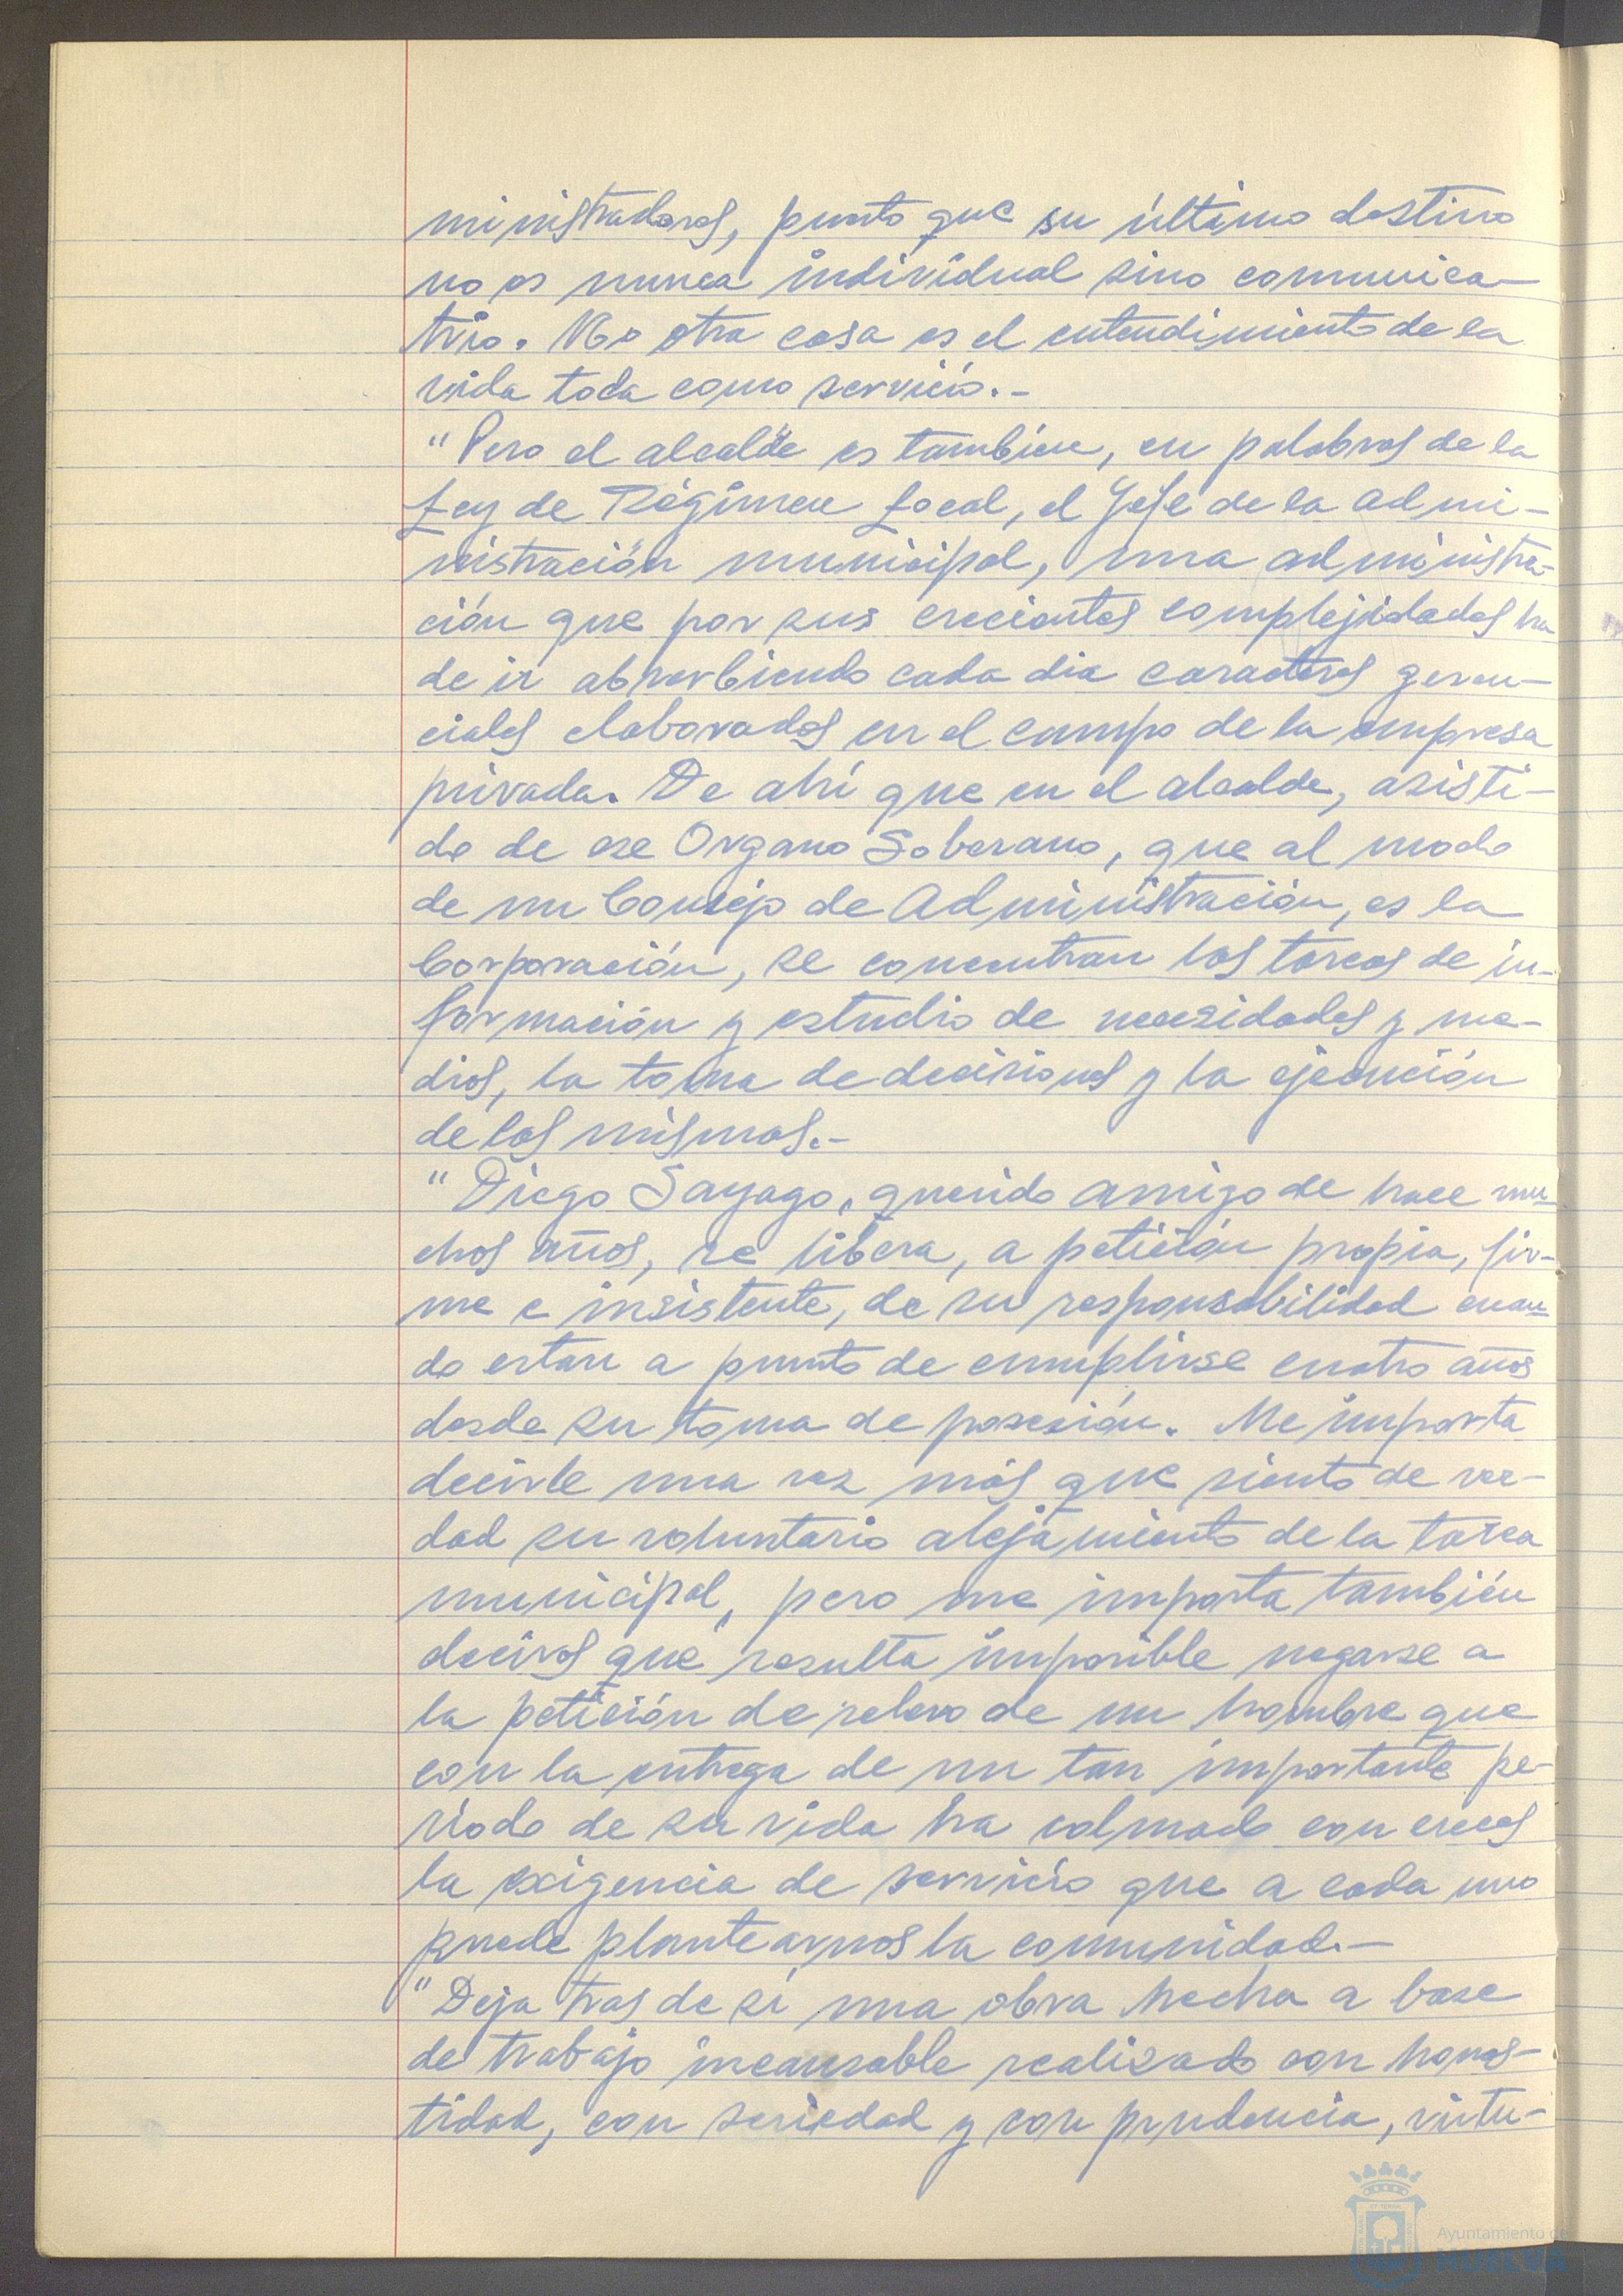 ministradores, puesto que su último destino
no es nunca individual sino comunica-
trio. No otra cosa es el entendimiento de la
vida toda como servicio.-
"Pero el alcalde es tambien, en palabras de la
Ley de Régimen Local, el Jefe de la admi-
nistración municipal, una administra-
ción que por sus crecientes complejidades ha
de ir absorbiendo cada dia caracteres geren-
ciales elaborados en el campo de la empresa
privada. De ahí que en el alcalde, asisti-
do de ese Organo Soberano, que al modo
de un Consejo de Administración, es la
Corporación, se concentran las tareas de in-
formación y estudio de necesidades y me-
dios, la toma de decisiones y la ejecución
de las mismas.-
"Diego Sayago, querido amigo de hace mu-
chos años, se libera, a petición propia, fir-
me e insistente, de su responsabilidad cuan-
do estan a punto de cumplirse cuatro años
desde su toma de posesión. Me importa
decirle una vez más que siento de ver-
dad su voluntario alejamiento de la tarea
municipal, pero me importa también
deciros que resulta imposible negarse a
la petición de relevo de un hombre que
con la entrega de un tan importante pe-
ríodo de su vida ha colmado con creces
la exigencia de servicio que a cada uno
puede plantearnos la comunidad.-
"Deja tras de sí una obra hecha a base
de trabajo incansable realizado con hones-
tidad, con seriedad y con prudencia, virtu-
Ayuntamiento de
HUELVA